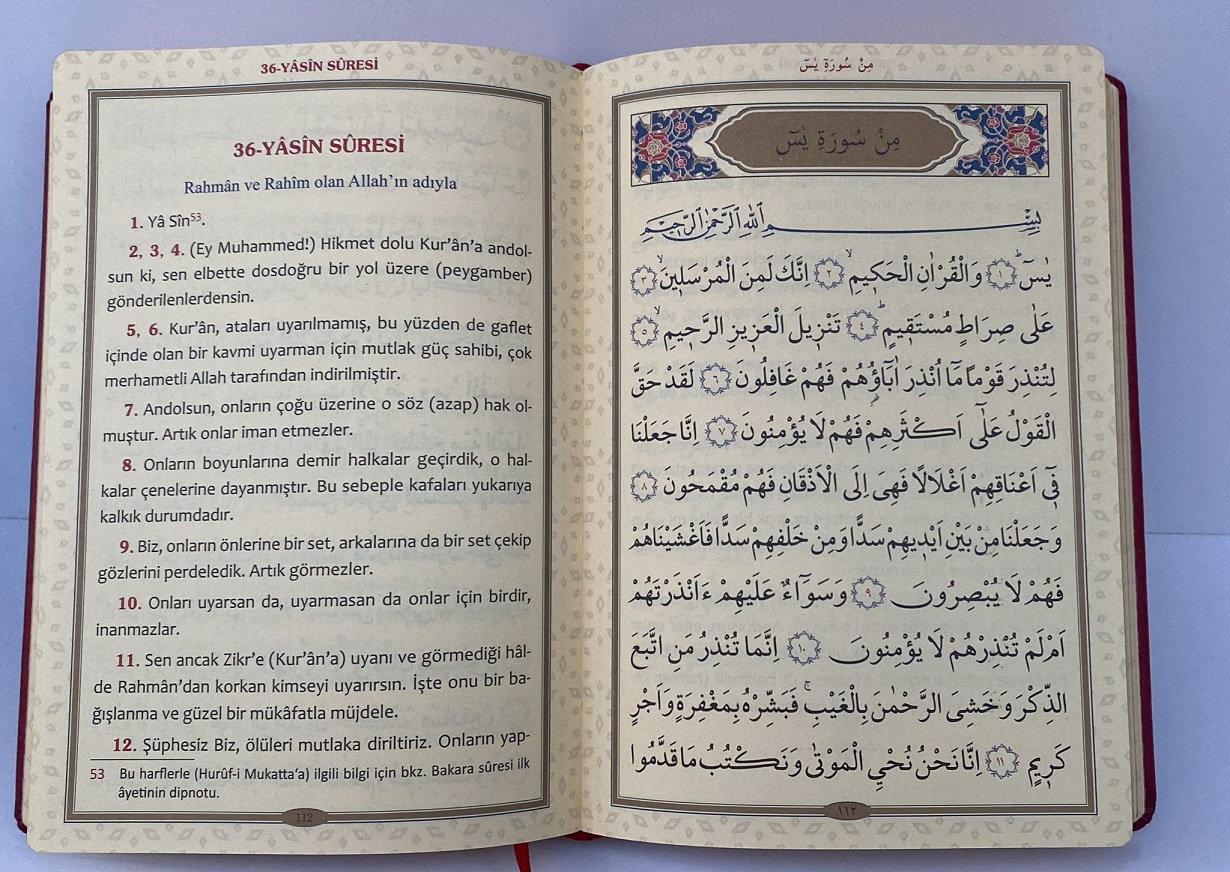 36-YÂSÎN SÛRESİ
36-YÂSÎN SÛRESİ
Rahmân ve Rahîm olan Allah’ın adıyla
1. Yâ Sîn53.
2, 3, 4. (Ey Muhammed!) Hikmet dolu Kur’ân’a andol-
sun ki, sen elbette dosdoğru bir yol üzere (peygamber)
gönderilenlerdensin.
5, 6. Kur’ân, ataları uyarılmamış, bu yüzden de gaflet
içinde olan bir kavmi uyarman için mutlak güç sahibi, çok
merhametli Allah tarafından indirilmiştir.
7. Andolsun, onların çoğu üzerine o söz (azap) hak ol-
muştur. Artık onlar iman etmezler.
8. Onların boyunlarına demir halkalar geçirdik, o hal-
kalar çenelerine dayanmıştır. Bu sebeple kafaları yukarıya
kalkık durumdadır.
9. Biz, onların önlerine bir set, arkalarına da bir set çekip
gözlerini perdeledik. Artık görmezler.
10. Onları uyarsan da, uyarmasan da onlar için birdir,
inanmazlar.
11. Sen ancak Zikr’e (Kur’ân’a) uyanı ve görmediği hâl-
de Rahmân’dan korkan kimseyi uyarırsın. İşte onu bir ba-
ğışlanma ve güzel bir mükâfatla müjdele.
12. Şüphesiz Biz, ölüleri mutlaka diriltiriz. Onların yap-
53 Bu harflerle (Hurûf-i Mukatta‘a) ilgili bilgi için bkz. Bakara sûresi ilk
âyetinin dipnotu.
112
مِنْ سُورَةِ يٰسٓ
مِنْ سُورَةِ يٰسٓ
بِسْمِ اللّٰهِ الرَّحْمٰنِ الرَّحٖيمِ
يٰسٓۜ ﴿١﴾ وَالْقُرْاٰنِ الْحَكٖيمِۙ ﴿٢﴾ اِنَّكَ لَمِنَ الْمُرْسَلٖينَۙ ﴿٣﴾
عَلٰى صِرَاطٍ مُسْتَقٖيمٍۜ ﴿٤﴾ تَنْزٖيلَ الْعَزٖيزِ الرَّحٖيمِۙ ﴿٥﴾
لِتُنْذِرَ قَوْمًا مَٓا اُنْذِرَ اٰبَٓاؤُ۬هُمْ فَهُمْ غَافِلُونَ ﴿٦﴾ لَقَدْ حَقَّ
الْقَوْلُ عَلٰٓى اَكْثَرِهِمْ فَهُمْ لَا يُؤْمِنُونَ ﴿٧﴾ اِنَّا جَعَلْنَا
فٖٓى اَعْنَاقِهِمْ اَغْلَالًا فَهِىَ اِلَى الْاَذْقَانِ فَهُمْ مُقْمَحُونَ ﴿٨﴾
وَجَعَلْنَا مِنْ بَيْنِ اَيْدٖيهِمْ سَدًّا وَمِنْ خَلْفِهِمْ سَدًّا فَاَغْشَيْنَاهُمْ
فَهُمْ لَا يُبْصِرُونَ ﴿٩﴾ وَسَوَٓاءٌ عَلَيْهِمْ ءَاَنْذَرْتَهُمْ
اَمْ لَمْ تُنْذِرْهُمْ لَا يُؤْمِنُونَ ﴿١٠﴾ اِنَّمَا تُنْذِرُ مَنِ اتَّبَعَ
الذِّكْرَ وَخَشِىَ الرَّحْمٰنَ بِالْغَيْبِۚ فَبَشِّرْهُ بِمَغْفِرَةٍ وَاَجْرٍ
كَرٖيمٍ ﴿١١﴾ اِنَّا نَحْنُ نُحْيِ الْمَوْتٰى وَنَكْتُبُ مَا قَدَّمُوا
١١٢